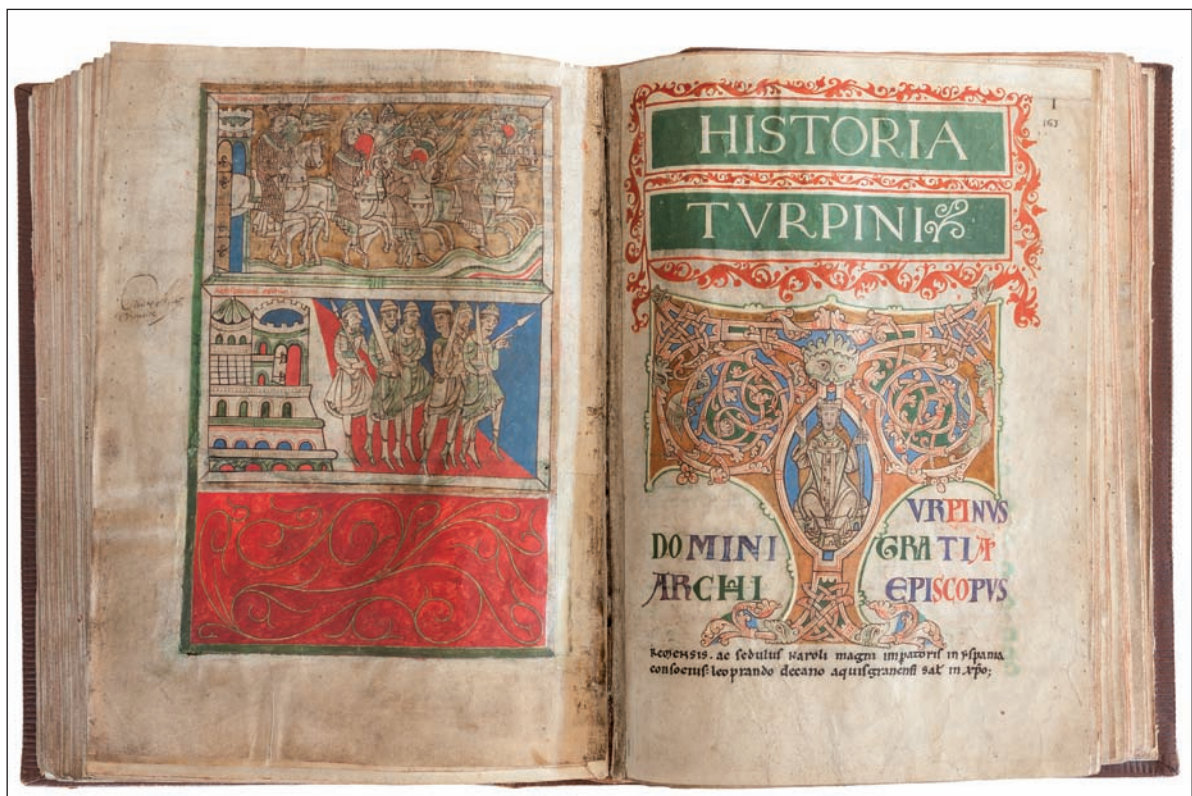 I
163
HISTORIA
TVRPINI
T
VRPINVS
DOMINI GRATIA
ARCHI EPISCOPVS
Remensis. ac sedulus karoli magni impatoris in yspania
consocius: leoprando decano aquisgranensi sal in xpo;